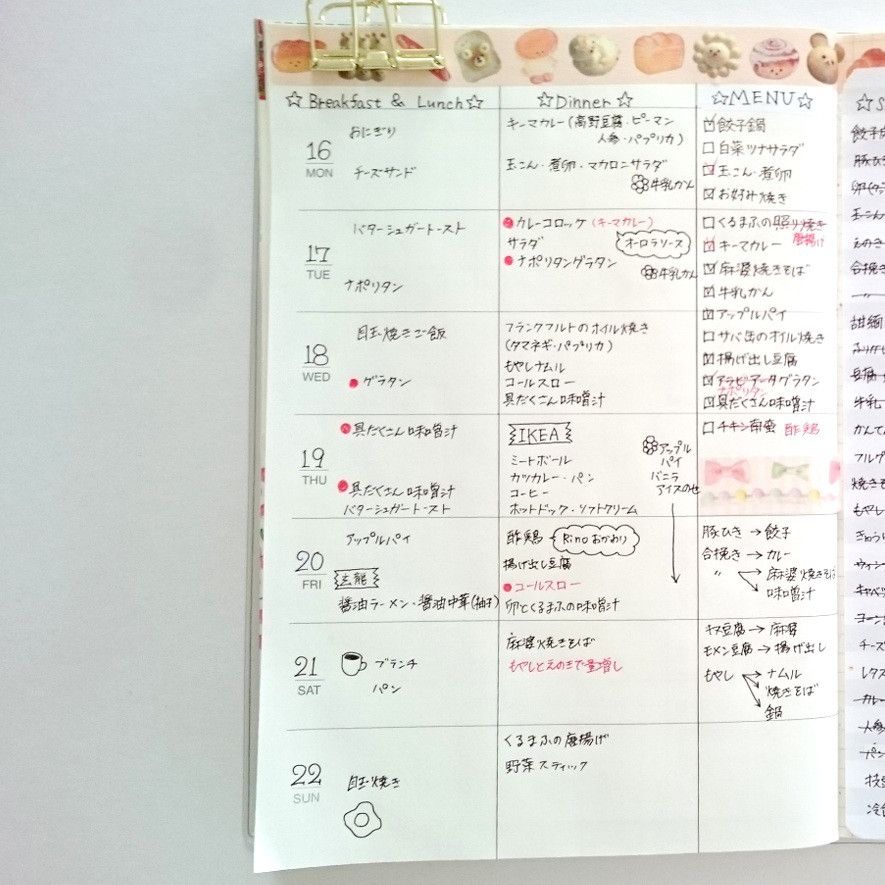 ☆ Breakfast & Lunch ☆
☆ Dinner ☆
☆ MENU ☆
16
MON
おにぎり
チーズサンド
キーマカレー(高野豆腐・ピーマン
人参・パプリカ)
玉こん・煮卵・マカロニサラダ
牛乳かん
17
TUE
バターシュガートースト
ナポリタン
カレーコロッケ (キーマカレー)
サラダ
オーロラソース
ナポリタングラタン
牛乳かん
18
WED
目玉焼きご飯
グラタン
フランクフルトのオイル焼き
(タマネギ・パプリカ)
もやしナムル
コールスロー
具だくさん味噌汁
19
THU
具だくさん味噌汁
具だくさん味噌汁
バターシュガートースト
IKEA
ミートボール
カツカレー・パン
コーヒー
ホットドック・ソフトクリーム
アップル
パイ
バニラ
アイスのせ
20
FRI
アップルパイ
玄龍
醤油ラーメン・醤油中華(柚子)
酢鶏
Rinoおかわり
揚げ出し豆腐
コールスロー
卵とくるまふの味噌汁
21
SAT
ブランチ
パン
麻婆焼きそば
もやしとえのきで量増し
22
SUN
目玉焼き
くるまふの唐揚げ
野菜スティック
餃子鍋
白菜ツナサラダ
玉こん・煮卵
お好み焼き
くるまふの照り焼き
唐揚げ
キーマカレー
麻婆焼きそば
牛乳かん
アップルパイ
サバ缶のオイル焼き
揚げ出し豆腐
アラビアータグラタン
ナポリタン
具だくさん味噌汁
チキン南蛮 酢鶏
豚ひき → 餃子
合挽き → カレー
〃 → 麻婆焼きそば
味噌汁
キヌ豆腐 → 麻婆
モメン豆腐 → 揚げ出し
もやし → ナムル
焼きそば
鍋